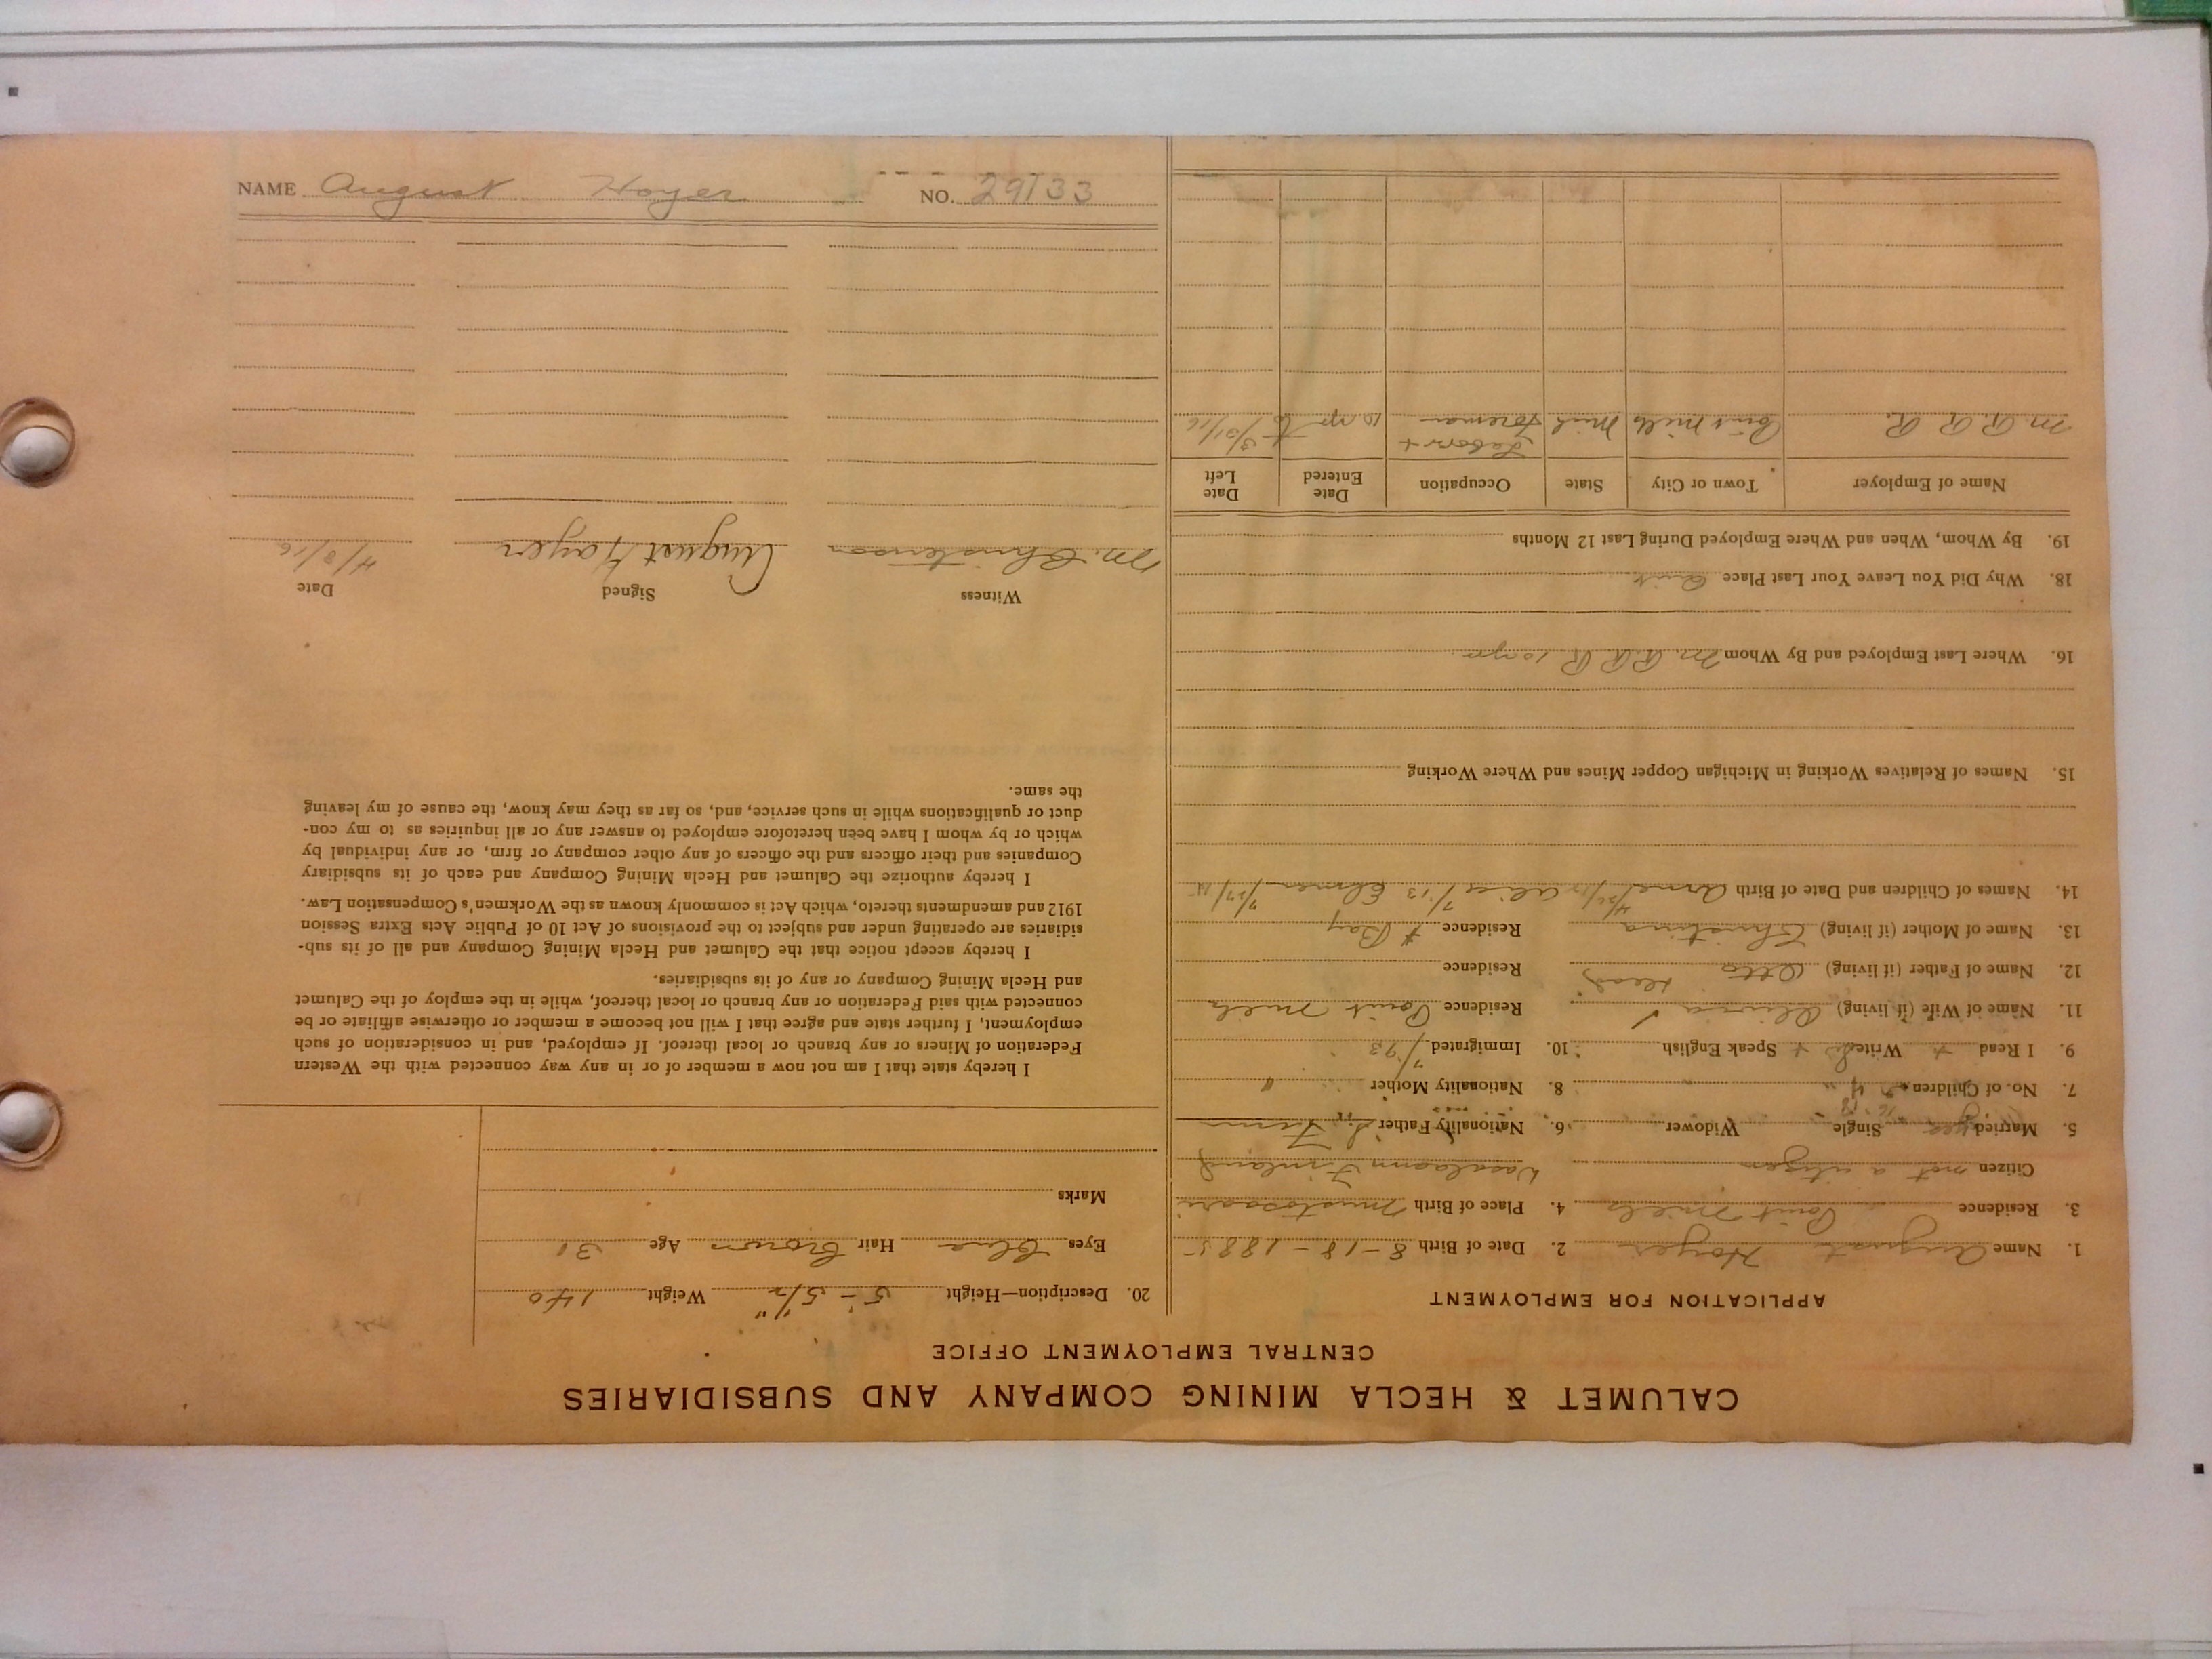 CALUMET & HECLA MINING COMPANY AND SUBSIDIARIES
CENTRAL EMPLOYMENT OFFICE
APPLICATION FOR EMPLOYMENT
1. Name August Hoyer 2. Date of Birth 8-18-1885
3. Residence Point Mills 4. Place of Birth Mustosaari
Citizen not a citizen Wasalaani Finland
5. Married yes Single Widower 6. Nationality Father Finn
7. No. of Children 8. Nationality Mother "
9. I Read + Write Speak English 10. Immigrated 7/93
11. Name of Wife (if living) Residence Point Mills
12. Name of Father (if living) Otto dead Residence
13. Name of Mother (if living) Christina Residence + Bay
14. Names of Children and Date of Birth
15. Names of Relatives Working in Michigan Copper Mines and Where Working
16. Where Last Employed and By Whom M. R. R. R 10 yr
18. Why Did You Leave Your Last Place Quit
19. By Whom, When and Where Employed During Last 12 Months
Name of Employer Town or City State Occupation Date Entered Date Left
M. R. R. R. Point Mills Mich Labor + Foreman 10 yr to 3/31/16
20. Description—Height 5'-5 1/2" Weight 140
Eyes Blue Hair Brown Age 31
Marks
I hereby state that I am not now a member of or in any way connected with the Western
Federation of Miners or any branch or local thereof. If employed, and in consideration of such
employment, I further state and agree that I will not become a member or otherwise affiliate or be
connected with said Federation or any branch or local thereof, while in the employ of the Calumet
and Hecla Mining Company or any of its subsidiaries.
I hereby accept notice that the Calumet and Hecla Mining Company and all of its sub-
sidiaries are operating under and subject to the provisions of Act 10 of Public Acts Extra Session
1912 and amendments thereto, which Act is commonly known as the Workmen's Compensation Law.
I hereby authorize the Calumet and Hecla Mining Company and each of its subsidiary
Companies and their officers and the officers of any other company or firm, or any individual by
which or by whom I have been heretofore employed to answer any or all inquiries as to my con-
duct or qualifications while in such service, and, so far as they may know, the cause of my leaving
the same.
Witness Signed Date
M. Christenson August Hoyer 4/3/16
NAME August Hoyer NO. 29133